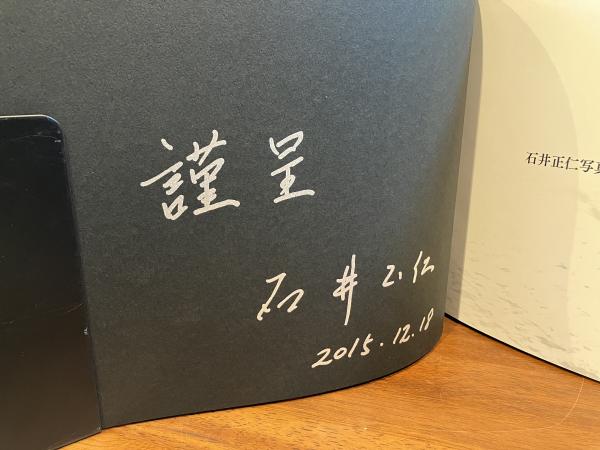 謹呈
石井正仁
2015.12.18
石井正仁写真